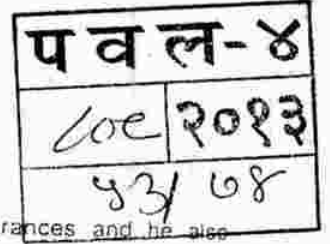 प व ल-४
८०९ २०१३
५३/ ७४
rances and he also